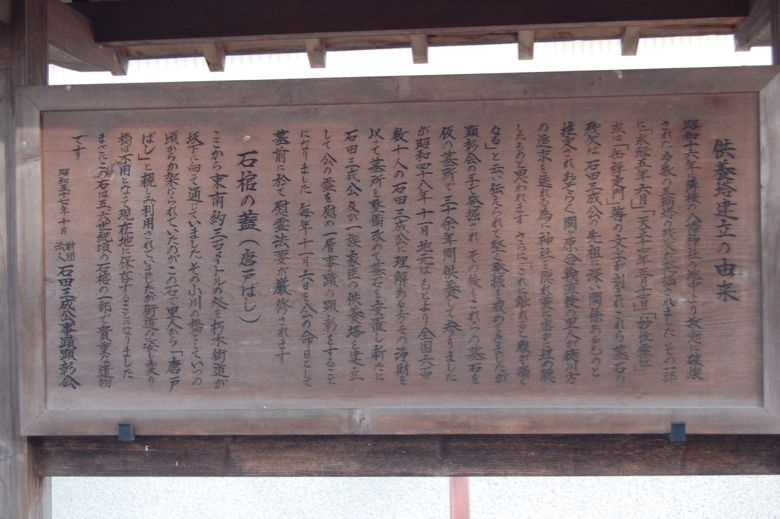 供養塔建立の由来
昭和十六年に隣接の八幡神社の地中より故意に破壊
された多数の五輪塔の残欠が発掘されました その一部
に「永禄五年六月」「天正十七年
或は「岳祥定門」等の文字が刻まれこれら墓石の
残欠は石田三成公の先祖に深い関係あるものと
推定されおそらく関ヶ原合戦直後の里人が徳川方
の追求を逃れる為に神社の
したものと思われます さらに「これに触れると腹が痛く
なる」と云い伝えられて堅く発掘を戒めてきましたが
顕彰会の手で発掘され その後はこれらの墓石を
仮の墓所で三十余年間供養して参りました
が昭和四十八年十一月地元はもとより 全国六百
数十人の石田三成公に理解ある方々の浄財を
以って墓所を整備改めて墓石を安置し新たに
石田三成公及び一族家臣の供養塔を建立
して公の霊を慰め一層事蹟の顕彰をすること
になりました 毎年十一月六日を公の命日として
墓前に於て慰霊法要が厳修されます
石棺の蓋(唐戸ばし)
ここから東南約三百メートルの処を朽木街道が
坂下に向って通っていました その小川の橋としていつの
頃からか架けられていたのがこの石で里人から「唐戸
ばし」と親しみ利用されていましたが街道の姿も変り
橋は不用となって現在地に保存することになりました
またこの石は五、六世紀頃の石棺の一部で貴重な遺物
です
昭和五十七年十月
財団法人 石田三成公事蹟顕彰会